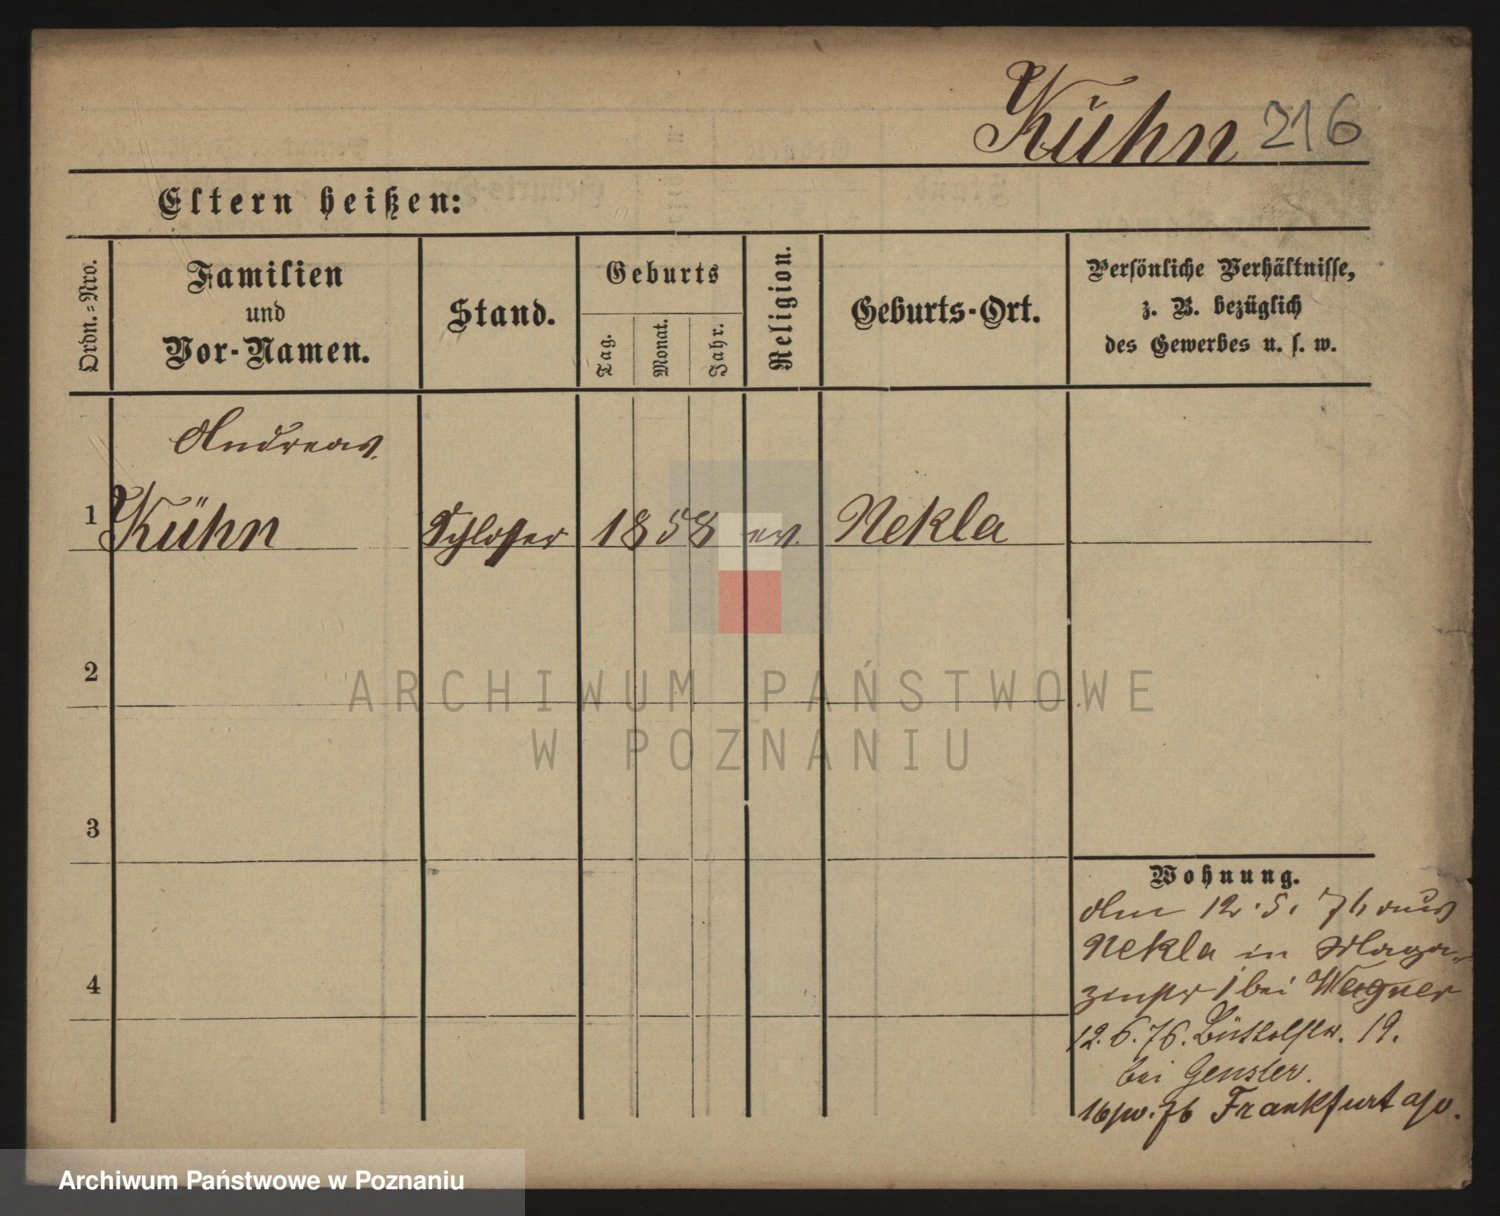 Kühn 216
Eltern heißen:
Ordn.=Nro.
Familien
und
Vor-Namen.
Stand.
Geburts
Tag.
Monat.
Jahr.
Religion.
Geburts-Ort.
Persönliche Verhältnisse,
z. B. bezüglich
des Gewerbes u. s. w.
Andreas
1 Kühn Schlosser 1858 ev. Nekla
2
3
4
Wohnung.
Am 12. 5. 76 aus
Nekla in Maga-
zinstr 1 bei Wegner
12. 6. 76. Büttelstr. 19.
bei Gensler.
76 Frankfurt a/o.
ARCHIWUM PAŃSTWOWE
W POZNANIU
Archiwum Państwowe w Poznaniu